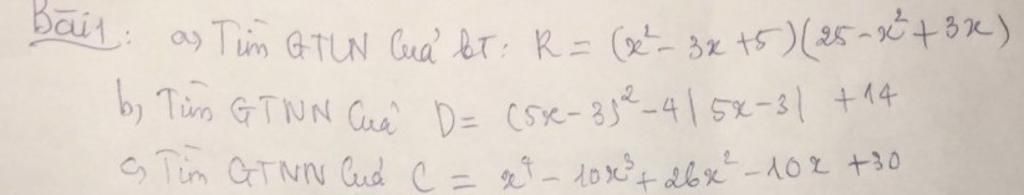 Bài 1: a) Tìm GTLN Của bt: R = (x² - 3x + 5)(25 - x² + 3x)
b) Tìm GTNN Của D = (5x - 3)² - 4|5x - 3| + 14
c) Tìm GTNN Của C = x⁴ - 10x³ + 26x² - 10x + 30